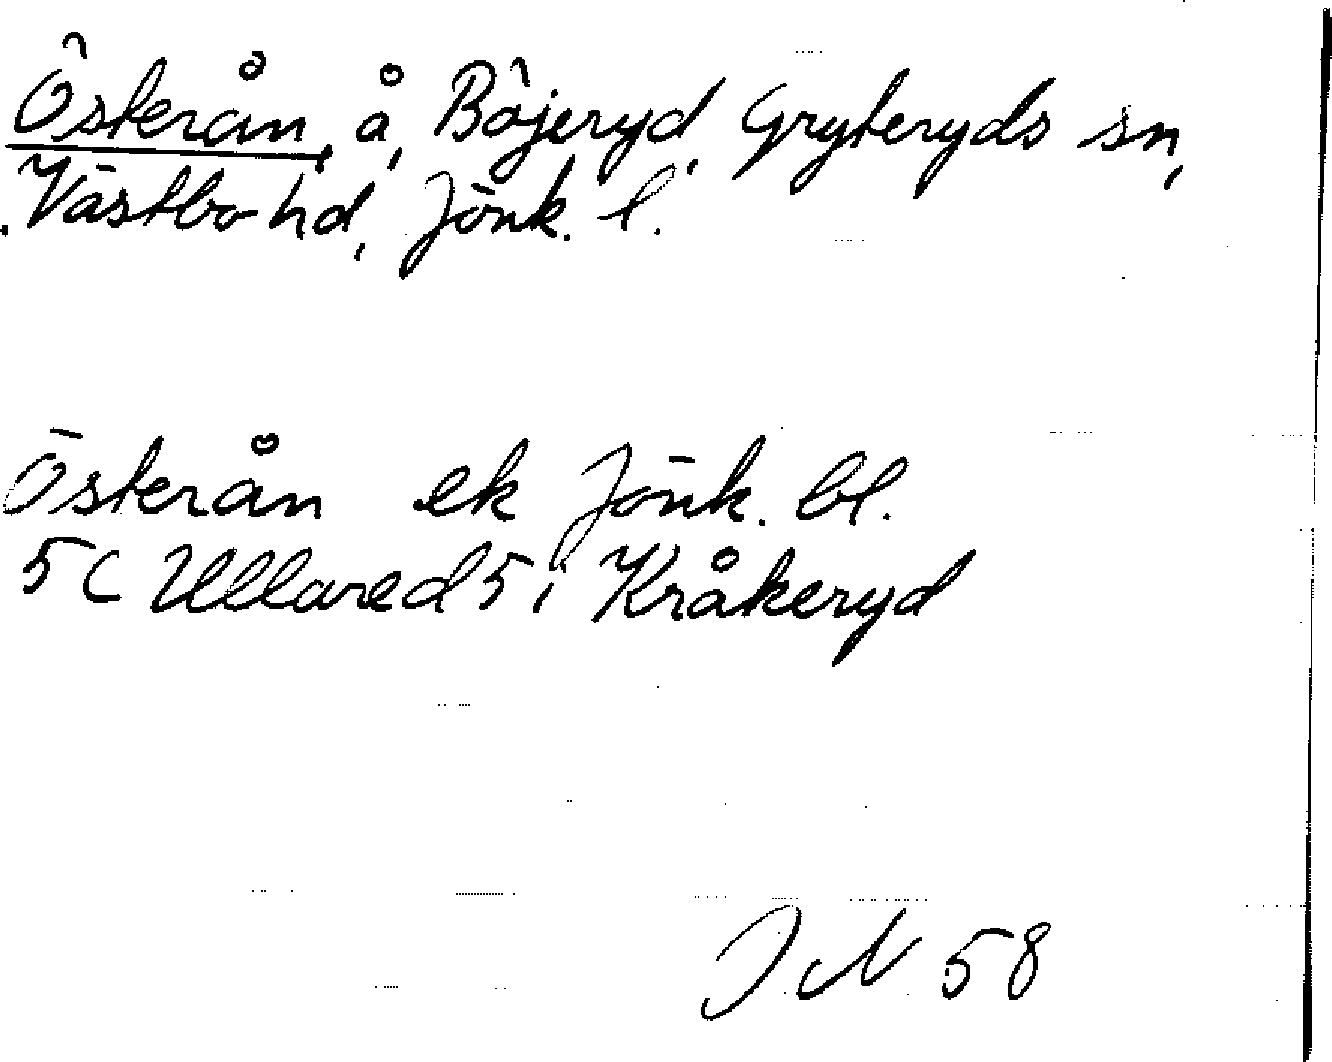 Österån, å, Böjeryd, Gryteryds sn,
Västbo hd, Jönk. l.
Österån ek Jönk. bl.
5C Ullared 5i Kråkeryd
JN 58